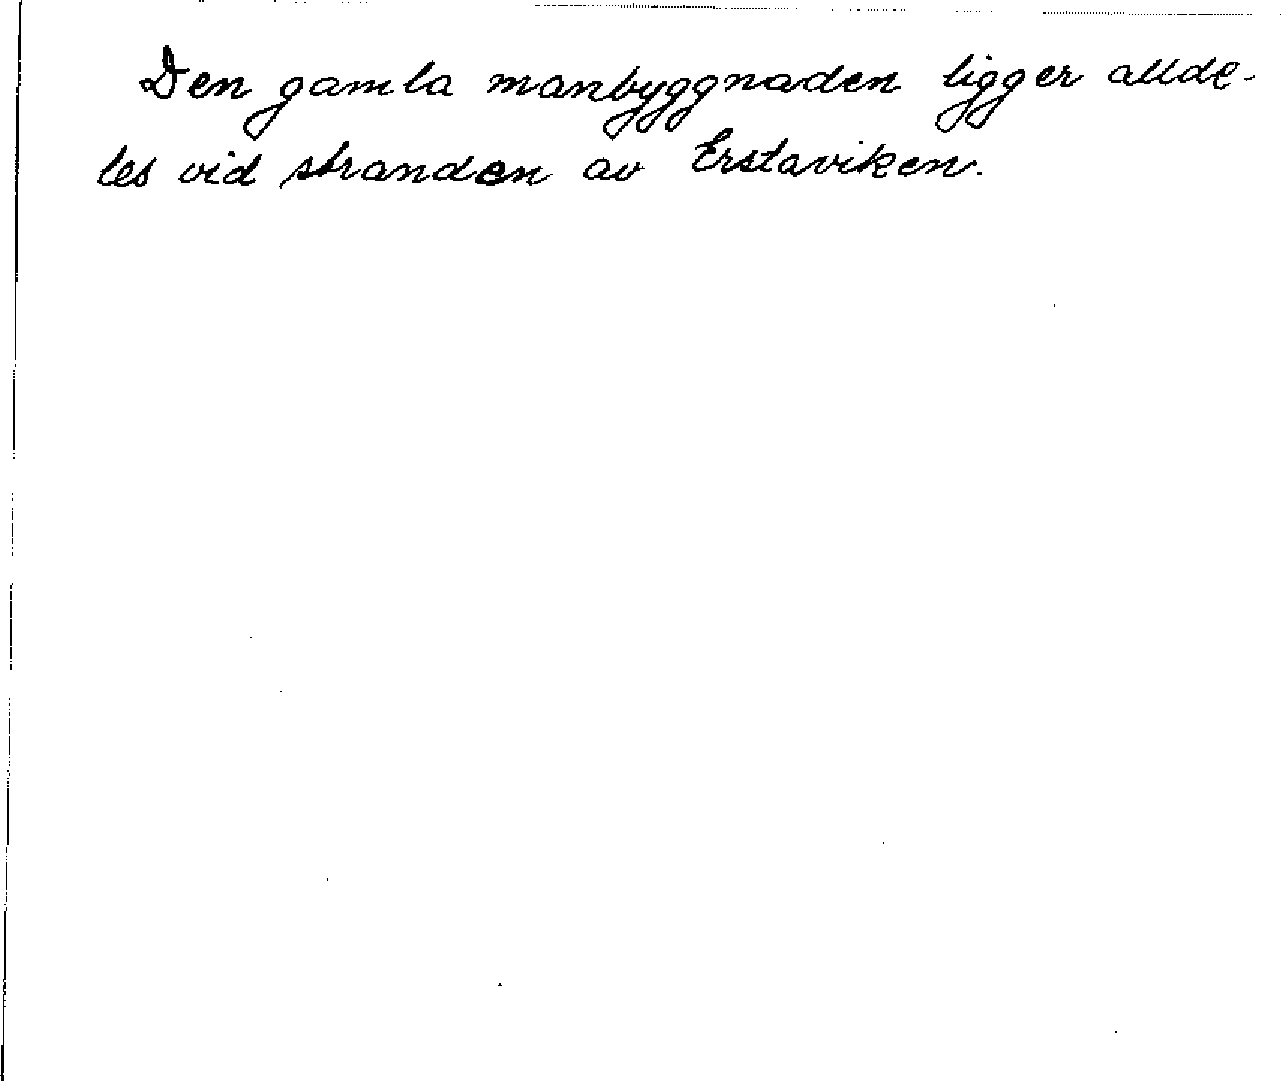 Den gamla manbyggnaden ligger allde-
les vid stranden av Erstaviken.